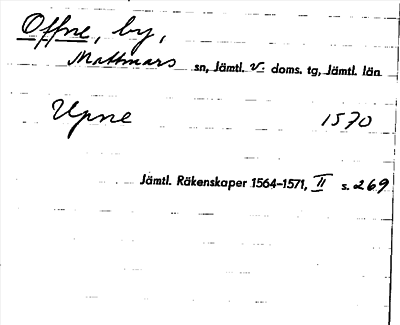 Offne, by,
Mattmars sn, Jämtl. v. doms. tg, Jämtl. län
Upne 1570
Jämtl. Räkenskaper 1564-1571, II s. 269